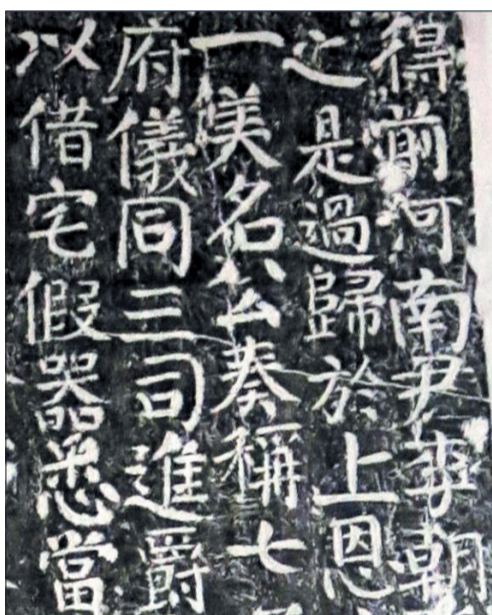 得前河南尹李朝
之是過歸於上恩
一美名公奏稱七
府儀同三司進爵
以借宅假器悉當